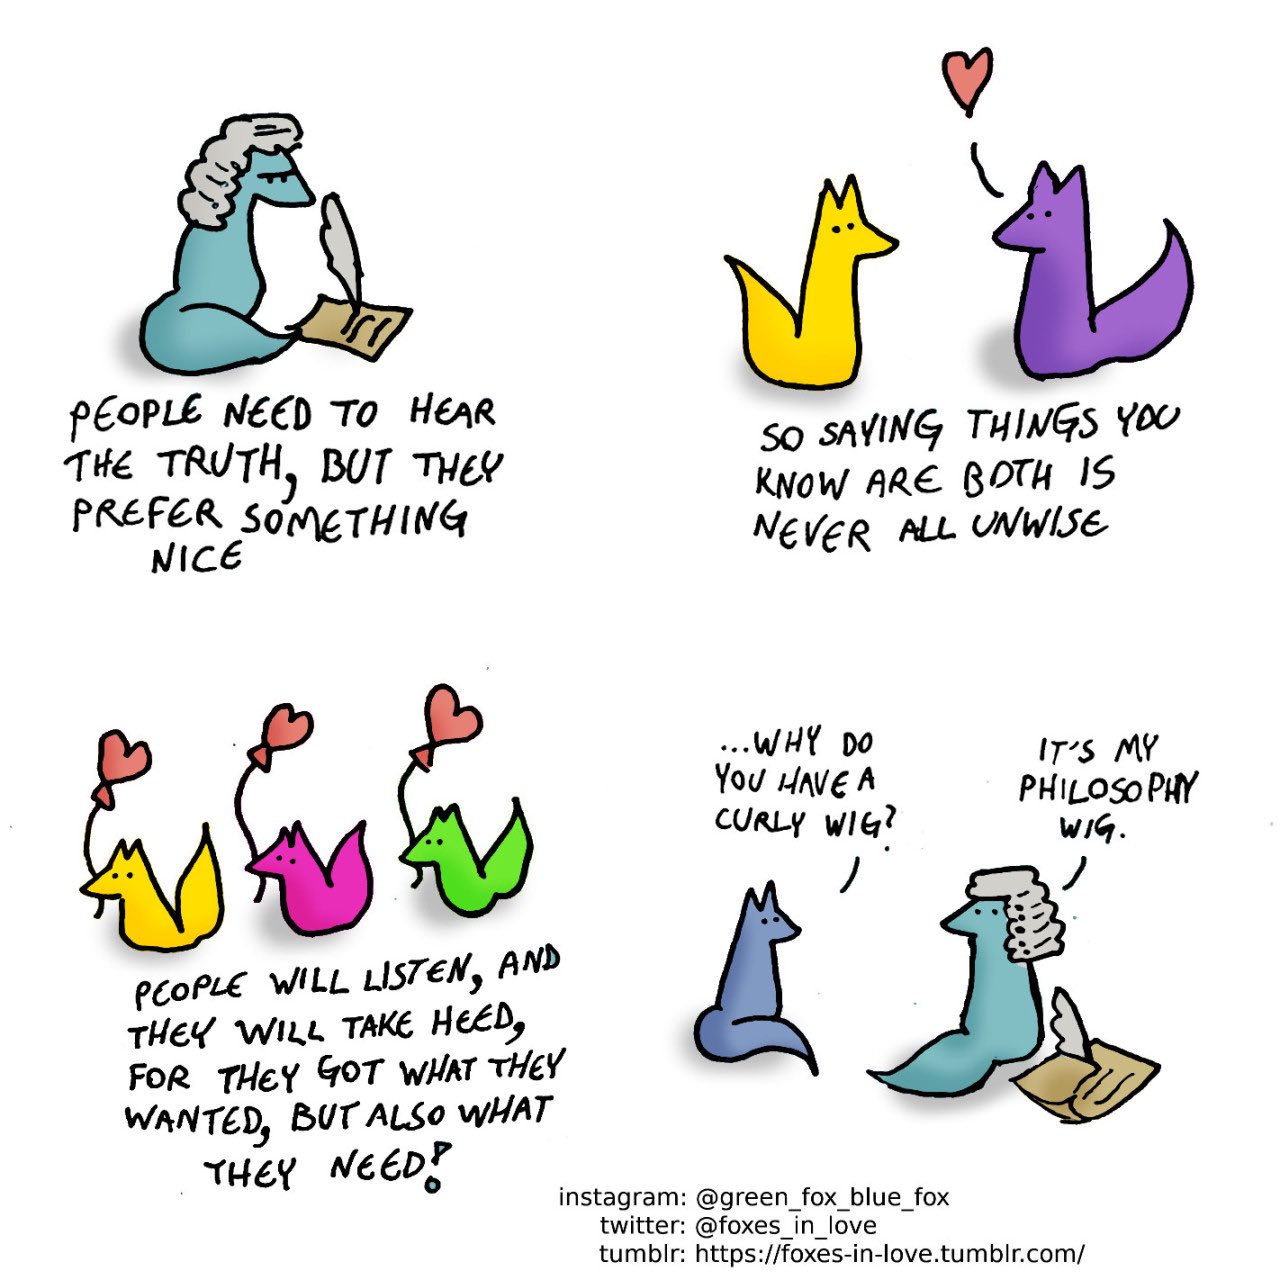 PEOPLE NEED TO HEAR
THE TRUTH, BUT THEY
PREFER SOMETHING
NICE
SO SAYING THINGS YOU
KNOW ARE BOTH IS
NEVER ALL UNWISE
PEOPLE WILL LISTEN, AND
THEY WILL TAKE HEED,
FOR THEY GOT WHAT THEY
WANTED, BUT ALSO WHAT
THEY NEED!
...WHY DO
YOU HAVE A
CURLY WIG?
IT'S MY
PHILOSOPHY
WIG.
instagram: @green_fox_blue_fox
twitter: @foxes_in_love
tumblr: https://foxes-in-love.tumblr.com/